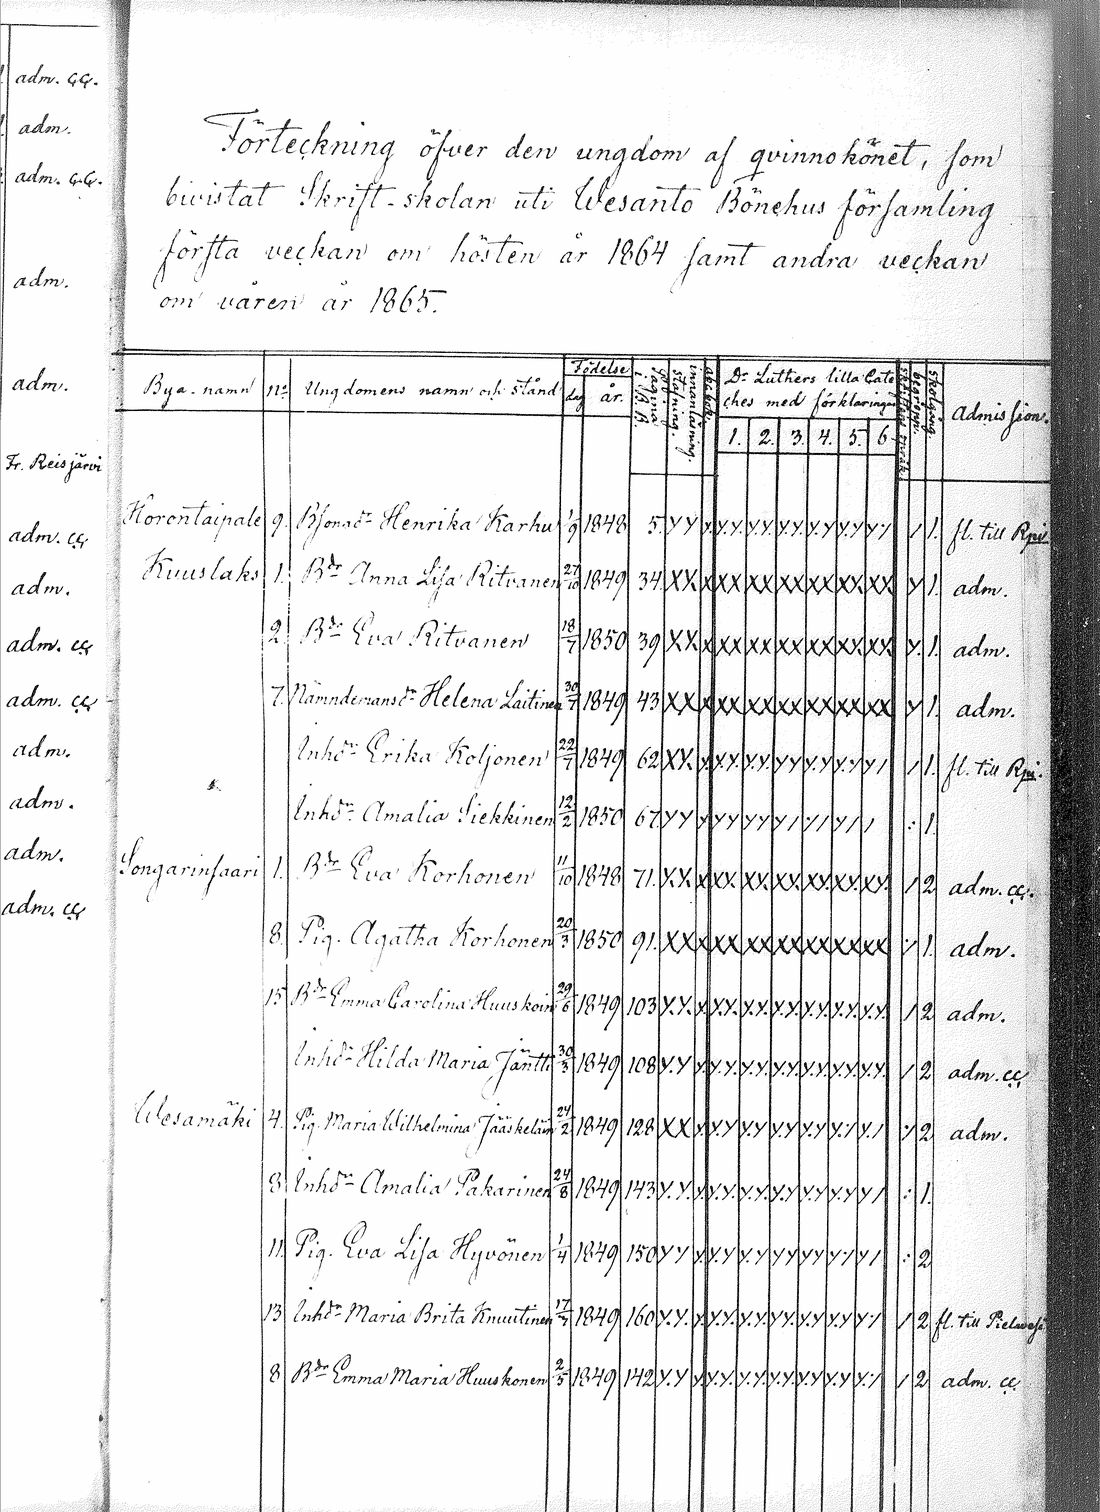 adm. çç.
adm.
adm. ç.ç.
adm.
adm.
Fr. Reisjärvi
adm. çç
adm.
adm. çç
adm. çç
adm.
adm.
adm.
adm. çç
Förteckning öfver den ungdom af qvinnokönet, som
bivistat Skrift-skolan uti Wesanto Bönehus församling
första veckan om hösten år 1864 samt andra veckan
om våren år 1865.
Bya-namn No Ungdomens namn och stånd Födelse dag år. Pagina i S.B.B. stafning. innanläsning. Dr Luthers lilla Cate ches med förklaringen 1. 2. 3. 4. 5. 6. begrepp. skolgång Admission.
Horontaipale 9. Henrika Karhu 1/9 1848 5. Y Y Y. Y.Y. Y.Y. Y.Y. Y.Y. Y.Y. Y./ / 1. fl. till Rpi.
Kuuslaks 1. Bdr Anna Lisa Ritvanen 27/10 1849 34. XX X XX XX XX XX XX XX Y 1. adm.
2. Bdr Eva Ritvanen 18/7 1850 39 XX X XX XX XX XX XX XX Y. 1. adm.
7. Nämndemansdr Helena Laitinen 30/7 1849 43 XX X XX XX XX XX XX XX Y 1. adm.
Inhdr Erika Koljonen 22/7 1849 62 XX. Y. Y.Y. Y.Y. YY Y.Y. Y.Y Y/ / 1. fl. till Rpi.
Inhdr Amalia Siekkinen 12/2 1850 67 YY Y YY YY Y/ Y/ Y/ / : 1.
Songarinsaari 1. Bdr Eva Korhonen 11/10 1848 71. X.X. X XX. XX. XX. XX. XX. XX. / 2 adm. çç.
8. Pig. Agatha Korhonen 20/3 1850 91. XX X XX XX XX XX XX XX Y 1. adm.
15 Bdr Emma Carolina Huuskoin 29/6 1849 103 Y.Y. Y. Y.Y. Y.Y. Y.Y. Y.Y. Y.Y. Y.Y. / 2 adm.
Inhdr Hilda Maria Jäntti 30/3 1849 108 Y.Y Y Y.Y. Y.Y. Y.Y. Y.Y. Y.Y. Y.Y. / 2 adm. çç
Wesamäki 4. Pig. Maria Wilhelmina Jääskeläin 24/2 1849 128 XX Y. Y.Y Y.Y. Y.Y. Y.Y. Y./ Y./ Y 2 adm.
8 Inhdr Amalia Pakarinen 24/8 1849 143 Y.Y. Y. Y.Y. Y.Y. Y.Y Y.Y. Y.Y Y/ : 1.
11. Pig. Eva Lisa Hyvönen 1/4 1849 150 YY Y. Y.Y Y.Y YY YY Y/ Y/ : 2
13 Inhdr Maria Brita Knuutinen 17/7 1849 160 Y.Y. Y. Y.Y. Y.Y. Y.Y. Y.Y. Y.Y. Y./ / 2 fl. till Pielavesi
8 Bdr Emma Maria Huuskonen 2/5 1849 142 Y.Y Y Y.Y. Y.Y. Y.Y. Y.Y. Y.Y. Y./ / 2 adm. çç